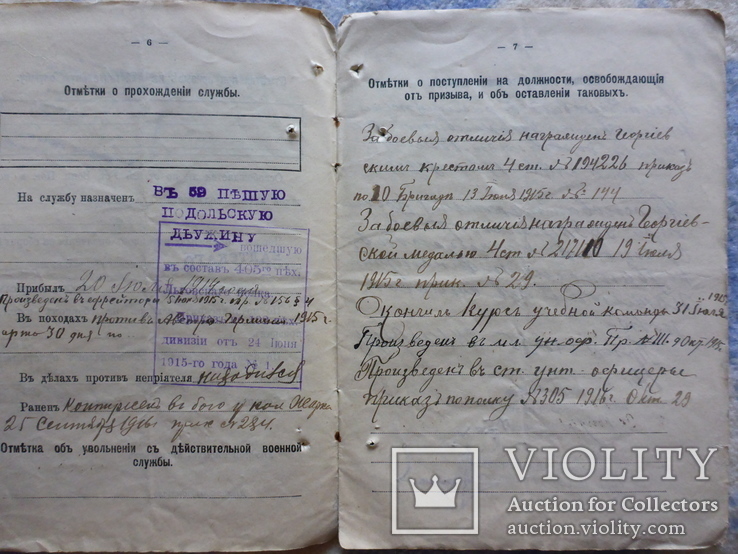 — 6 —
Отмѣтки о прохожденіи службы.
На службу назначенъ
ВЪ 59 ПѢШУЮ
ПОДОЛЬСКУЮ
ДРУЖИНУ
вошедшую
въ составъ 405го пѣх.
Льговскаго полка
дивизіи отъ 24 Іюня
1915-го года №
Прибылъ 20 Іюля 1914 года
Произведенъ въ ефрейторы 1915 г. пр. № 156 § 4
Въ походахъ противъ Австро Германіи 1915 г.
марта 30 дня по
Въ дѣлахъ противъ непріятеля находился
Раненъ Контуженъ въ бою у
25 Сентября 1916 г прик № 284.
Отмѣтка объ увольненіи съ дѣйствительной военной
службы.
— 7 —
Отмѣтки о поступленіи на должности, освобождающія
отъ призыва, и объ оставленіи таковыхъ.
За боевыя отличія награжденъ Георгіев
скимъ крестомъ 4 ст. № 194226 приказ
по 10 Бригадѣ 13 Іюля 1915 г. № 144
За боевыя отличія награжденъ Георгіев-
ской медалью 4 ст № 19 Іюля
1915 г прик. № 29.
Окончилъ курсъ учебной команды 31 Іюля
Произведенъ въ мл. ун. оф. Пр. №
Произведенъ въ ст. унт. офицеры
приказъ по полку № 305 1916 г. Окт. 29
VIOLITY
Auction for Collectors
auction.violity.com